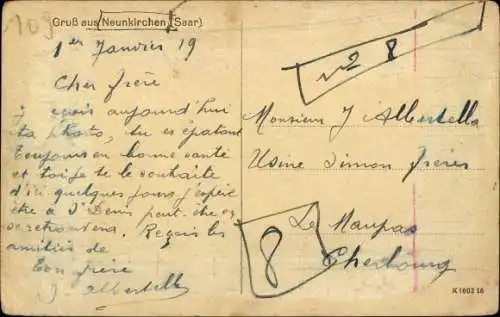 109
Gruß aus Neunkirchen (Saar)
1er Janvier 19
Cher frère
je reçois aujourd'hui
ta photo, tu es épatant
Toujours en bonne santé
et toi je te le souhaite
d'ici quelques jours j'espère
être à St Denis peut-être
se retrouvera. Reçois les
amitiés de
ton frère
J. Albertella
n2 8
Monsieur J Albertella
Usine Simon frères
Le Maupas
Cherbourg
8
K 1602 16